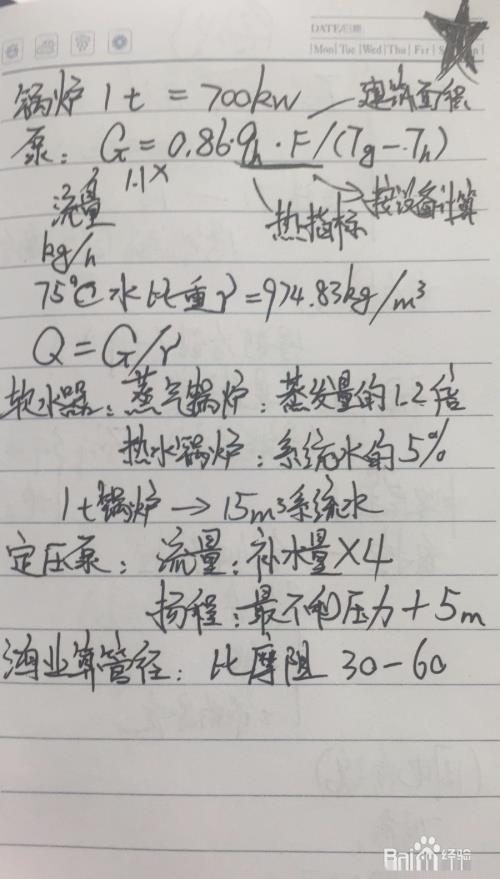 DATE/日期
Mon Tue Wed Thu Fri
锅炉 1t = 700kw 建筑面积
泵: G = 0.86·qh·F/(Tg-Th)
1.1×
流量
热指标 按设备计算
kg/h
75℃水比重γ=974.83kg/m³
Q = G/γ
软水器:蒸气锅炉:蒸发量的1.2倍
热水锅炉:系统水的5%
1t锅炉 → 15m³系统水
定压泵:流量:补水量×4
扬程:最不利压力+5m
鸿业算管径:比摩阻 30-60
Baidu经验